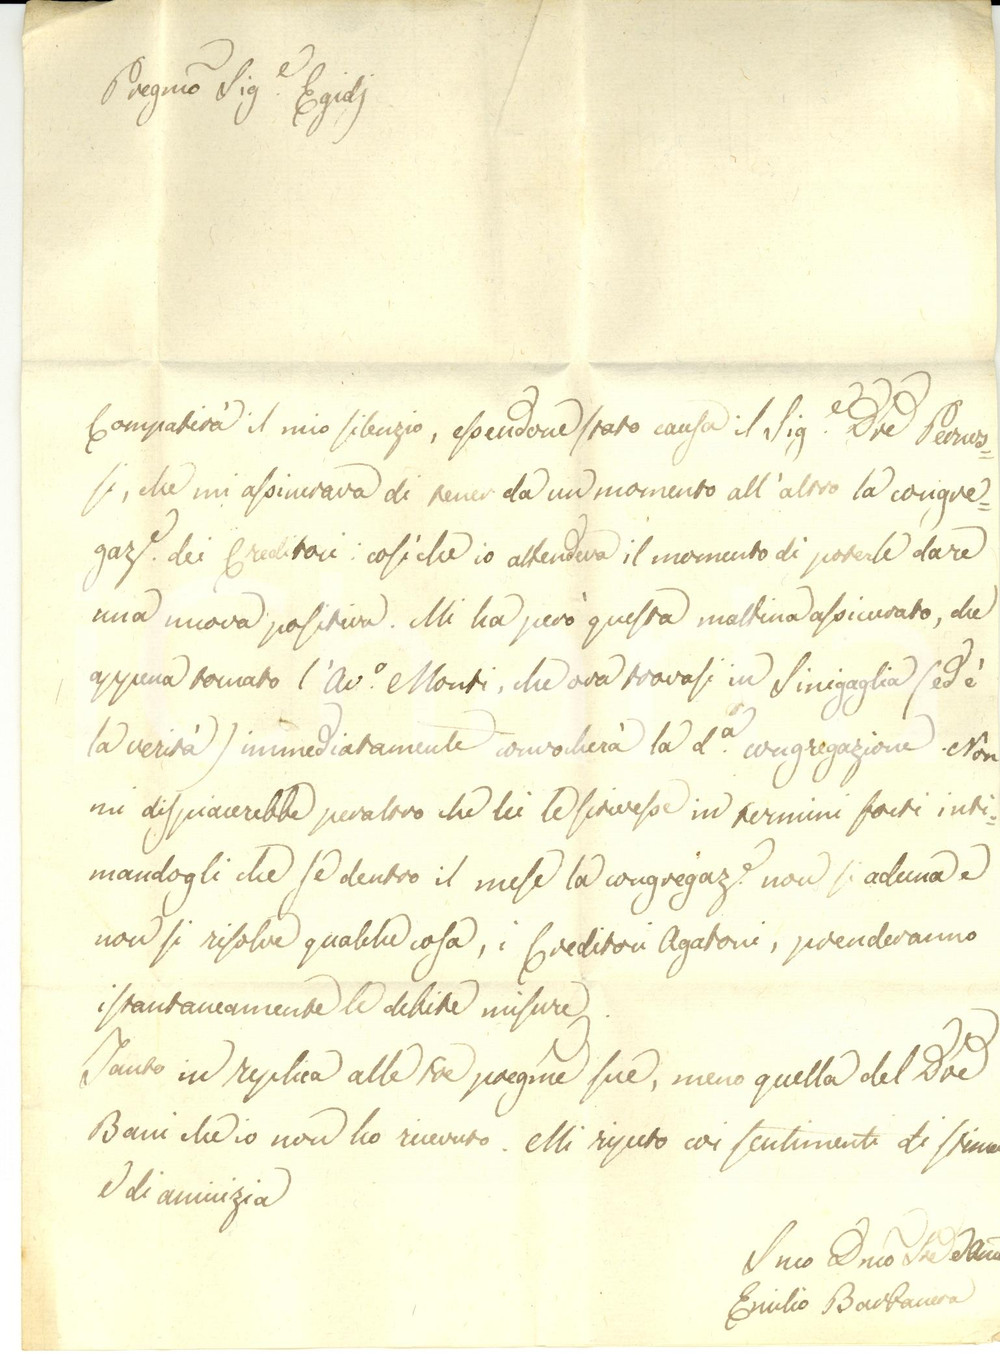 Pregmo Sig.e Egidj
Compatirà il mio silenzio, essendone stato causa il Sig.e Dre Peruz=
si, che mi assicurava di tener da un momento all'altro la congre=
gaz.e dei Creditori: cosiché io attendeva il momento di poterle dare
una nuova positiva. Mi ha però questa mattina assicurato, che
appena tornato l'Av.o Monti, che ora trovasi in Sinigaglia (ed è
la verità) immediatamente convocherà la d.a congregazione. Non
mi dispiacerebbe peraltro che lei le scrivesse in termini forti inti=
mandogli che se dentro il mese la congregaz.e non si aduna e
non si risolve qualche cosa, i Creditori Agatoni, prenderanno
istantaneamente le debite misure.
Tanto in replica alle tre pregme sue, meno quella del Dre
Bani che io non ho ricevuto. Mi ripeto coi sentimenti di stima
e di amicizia
Suo Dmo
Emilio Barbanera